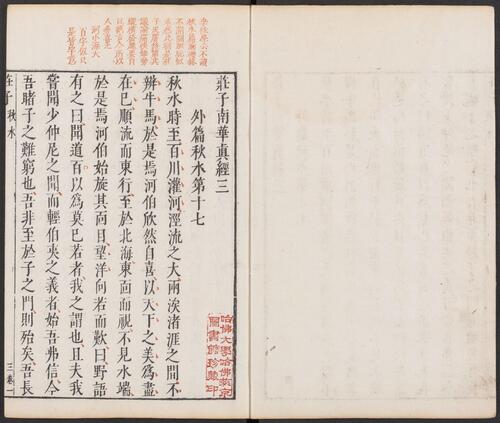 李性學云不讀
莊子南華真經三
外篇秋水第十七
秋水時至百川灌河涇流之大兩涘渚涯之間不
辨牛馬於是焉河伯欣然自喜以天下之美爲盡
在已順流而東行至於北海東靣而視不見水端
於是焉河伯始旋其靣目望洋向若而歎曰野語
有之曰聞道百以爲莫已若者我之謂也且夫我
嘗聞少仲尼之聞而輕伯夷之義者始吾弗信今
吾睹子之難窮也吾非至於子之門則殆矣吾長
莊子 秋水 三卷 一
哈佛大學哈佛燕京
圖書館珍藏印